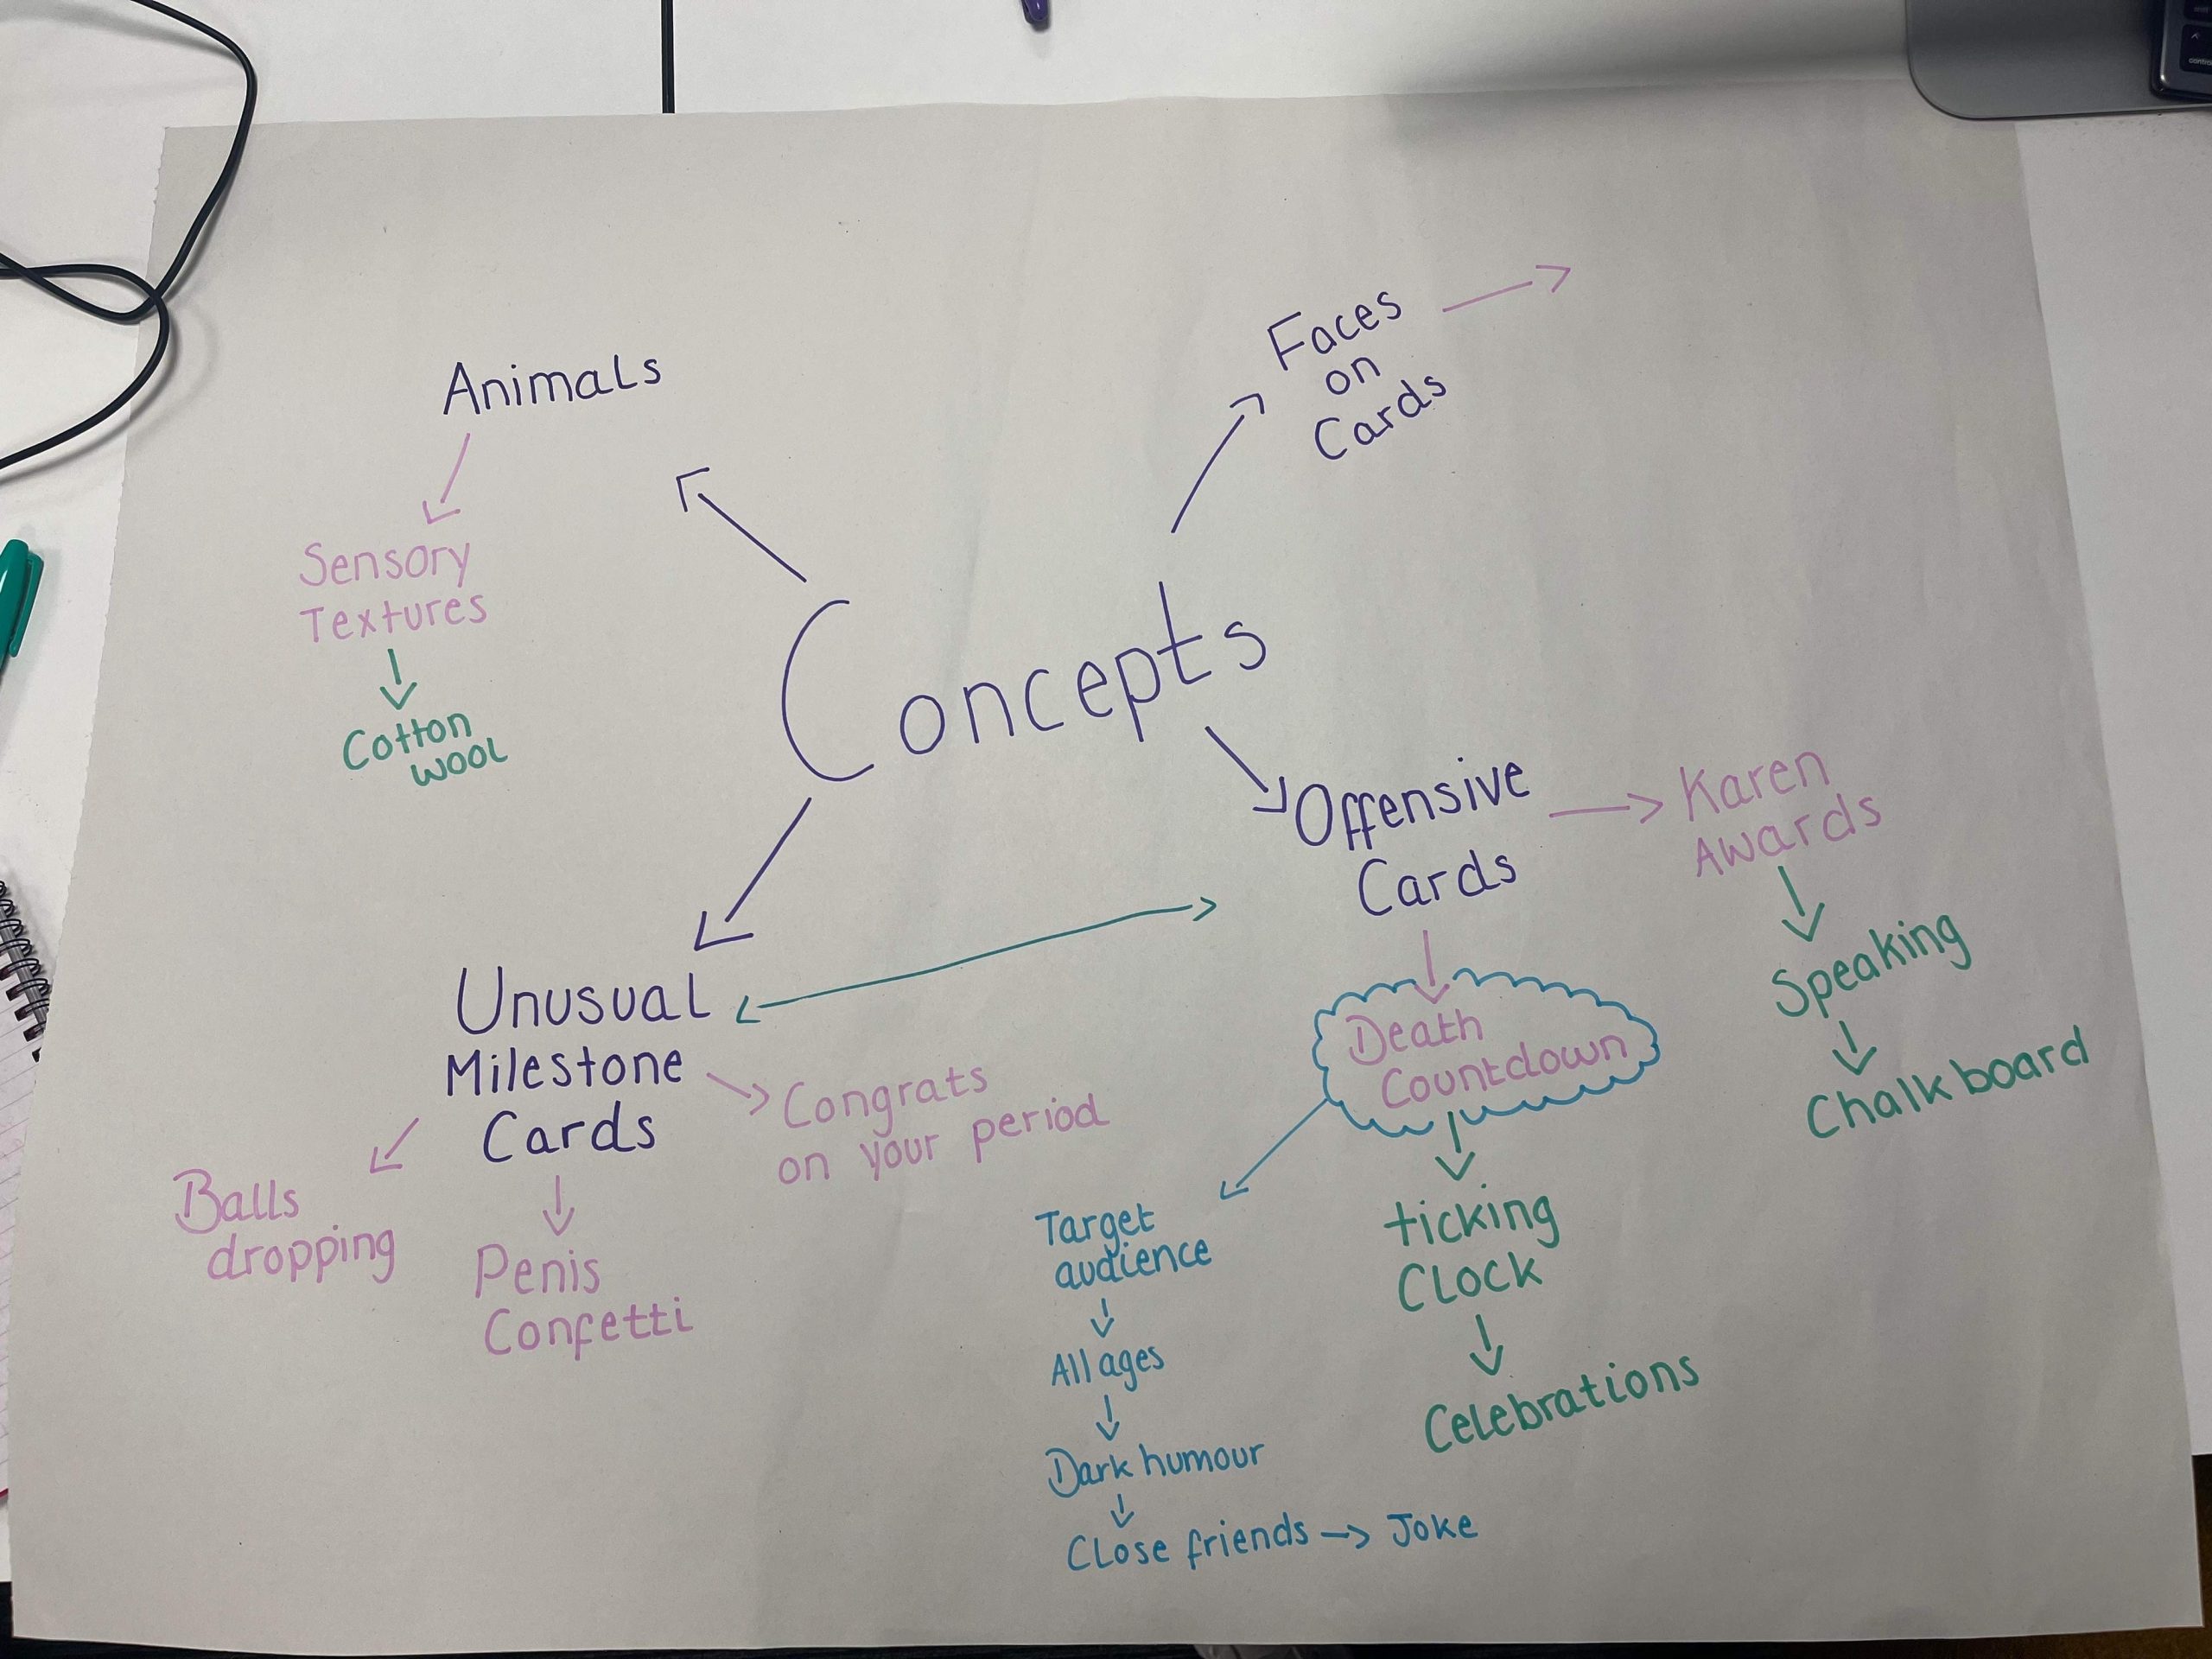 Concepts
Animals
Sensory
Textures
Cotton
wool
Faces
on
Cards
Offensive
Cards
Karen
Awards
Speaking
Chalk board
Death
Countdown
ticking
Clock
Celebrations
Target
audience
All ages
Dark humour
Close friends → Joke
Unusual
Milestone
Cards
Congrats
on your period
Balls
dropping
Penis
Confetti
control